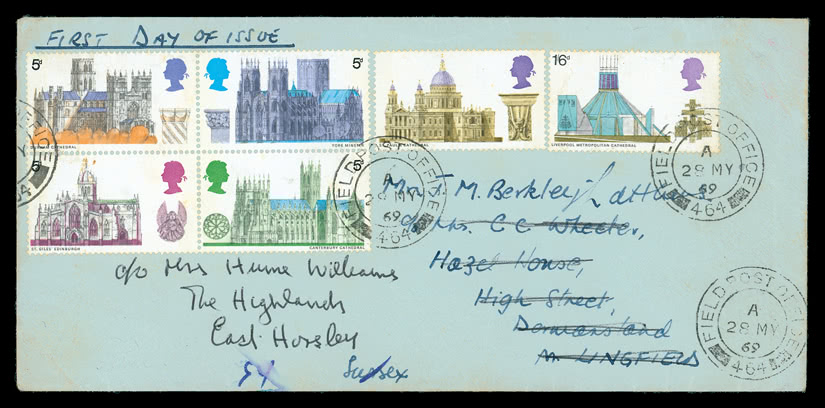 FIRST DAY OF ISSUE
5d
5d
16d
DURHAM CATHEDRAL
YORK MINSTER
ST. PAUL'S CATHEDRAL
LIVERPOOL METROPOLITAN CATHEDRAL
5d
5d
ST. GILES' EDINBURGH
CANTERBURY CATHEDRAL
FIELD POST OFFICE
A
28 MY
69
464
FIELD POST OFFICE
A
28 MY
69
464
FIELD POST OFFICE
A
28 MY
69
464
M. Berkley
Mrs. C C Wheeler,
Hazel House,
High Street,
Dormansland
LINGFIELD
Sussex
c/o Mrs Hume Williams
The Highlands
East Horsley